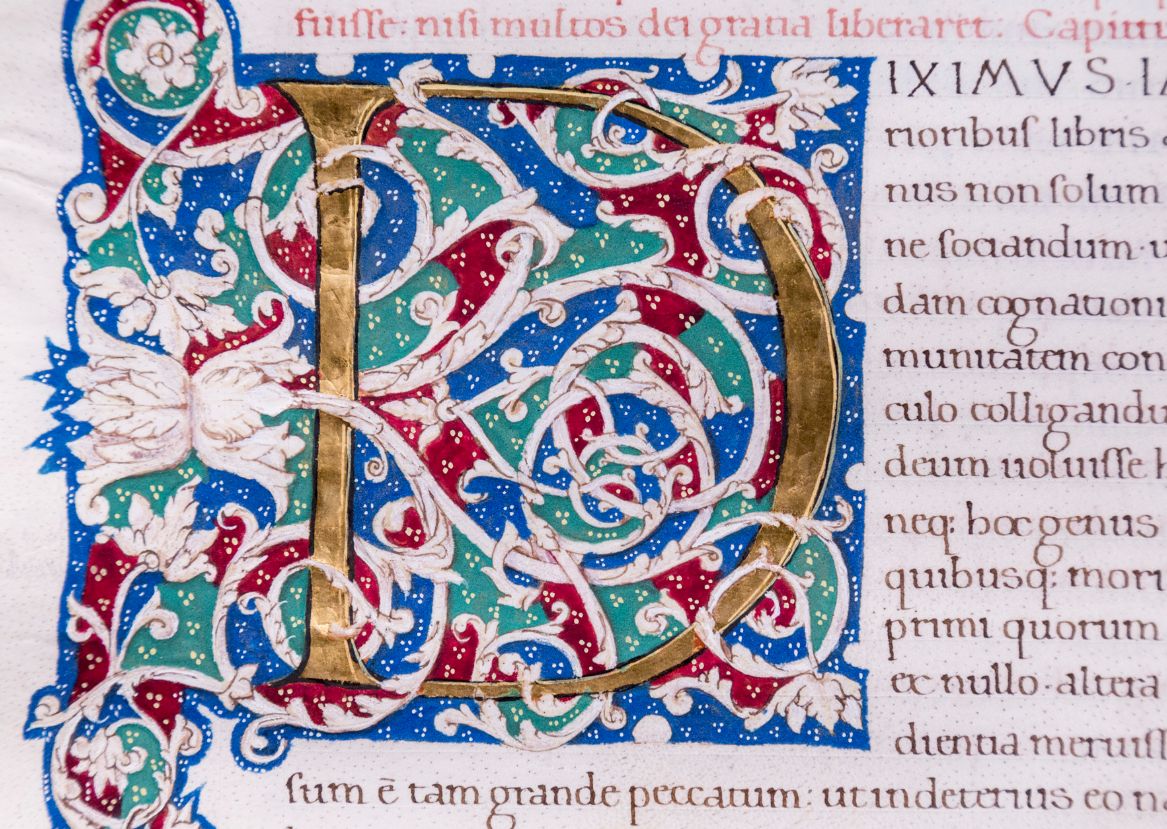 fuisse: nisi multos dei gratia liberaret:
DIXIMVS
rioribus libris
nus non solum
ne sociandum·
dam cognationi
munitatem con
culo colligandu
deum uoluisse
neq: hoc genus
quibusq: mori
primi quorum
ex nullo·altera
dientia meruiss
sum ē tam grande peccatum: ut indeterius eo na